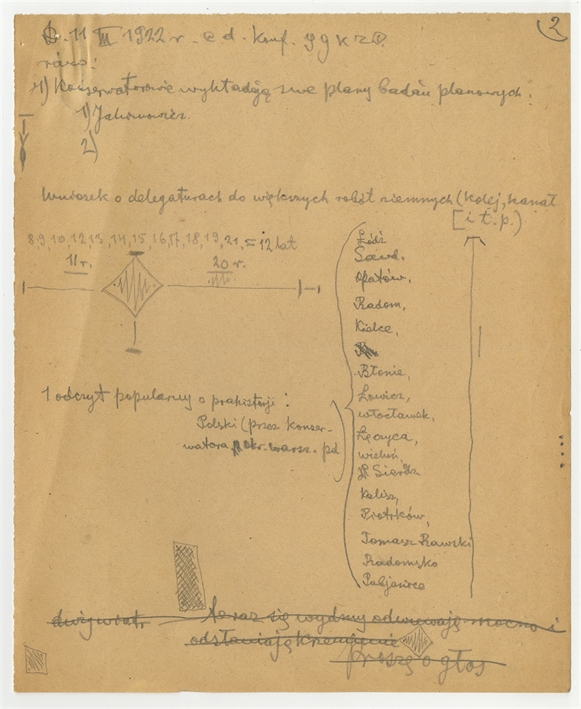 2
D. 11 III 1922 r. c d. konf. PGKZP.
rano:
1) Konserwatorowie wykładają swe plany badań planowych.
1) Jakimowicz
2)
Wniosek o delegaturach do większych robót ziemnych (kolej, kanał
[i t. p.)
8, 9, 10, 12, 13, 14, 15, 16, 17, 18, 19, 21, = 12 lat
11 r. 20 r.
Łódź
Sand.
Opatów,
Radom,
Kielce,
Błonie,
Łowicz,
Włocławek,
Łęczyca,
Wieluń,
Sieradz
Kalisz,
Piotrków,
Tomasz Rawski
Radomsko
Pabjanice
1 odczyt popularny o prahistorji:
Polski (przez konser-
watora okr. warsz. pd
dwig wiatr. A teraz się wydmy odwiewają mocno i
odsłaniają krzemienie
proszę o głos